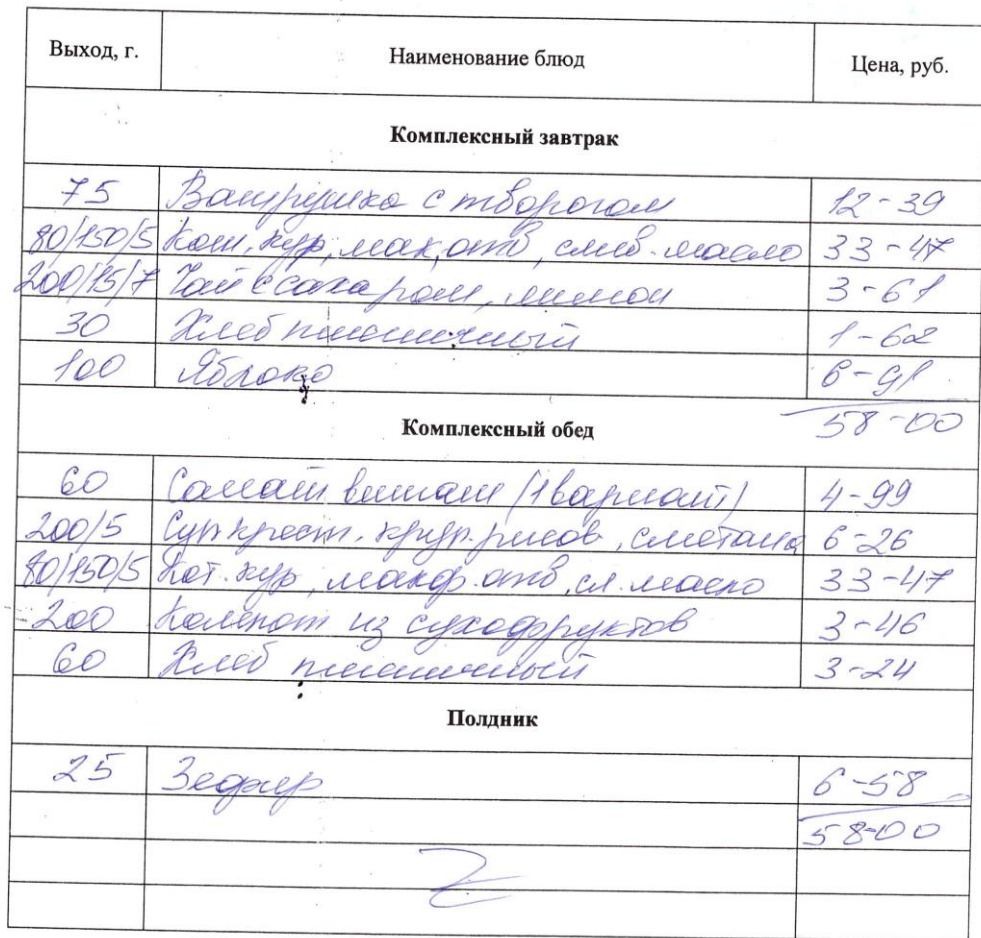 Выход, г. Наименование блюд Цена, руб.
Комплексный завтрак
75 Ватрушка с творогом 12-39
80/150/5 Кот. кур, мак, отв, слив. масло 33-47
200/15/7 Чай с сахаром, лимон 3-61
30 Хлеб пшеничный 1-62
100 Яблоко 6-91
58-00
Комплексный обед
60 Салат витам (1 вариант) 4-99
200/5 Суп крест. круп. рисов, сметана 6-26
80/150/5 Кот. кур, макор. отв, сл. масло 33-47
200 Компот из сухофруктов 3-46
60 Хлеб пшеничный 3-24
Полдник
25 Зефир 6-58
58-00